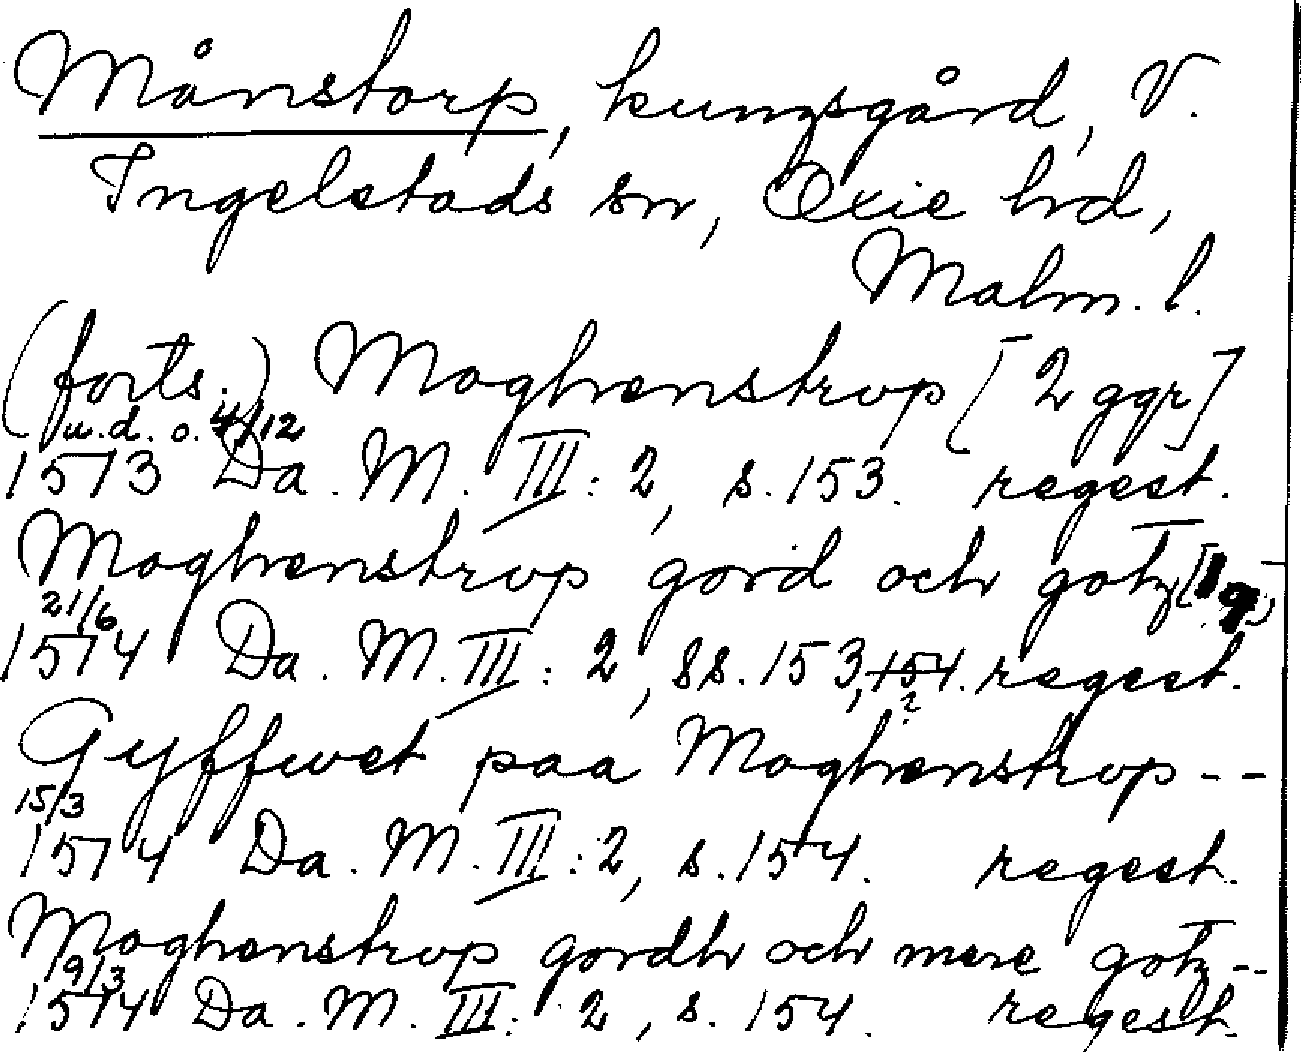 Månstorp, kungsgård, V.
Ingelstads sn, Oxie hrd,
Malm. l.
(forts.) Moghenstrop [2 ggr]
u.d. o. 4/12
1513 Da. M. III: 2, s. 153. regest.
Moghenstrop gord och gotz
21/6
1514 Da. M. III: 2, ss. 153, 154. regest.
?
Gyffwet paa Moghenstrop --
15/3
1514 Da. M. III: 2, s. 154. regest.
Moghenstrop gordh och mere gotz --
19/3
1514 Da. M. III: 2, s. 154. regest.